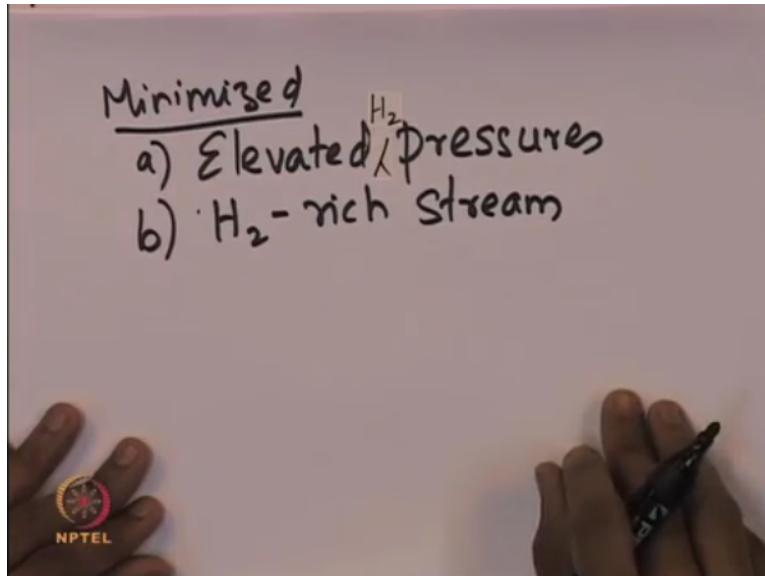 Minimized
a) Elevated H₂ pressures
b) H₂-rich stream
NPTEL